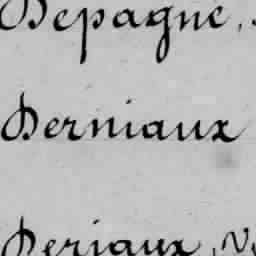 Depagne,
Derniaux
Deriaux,